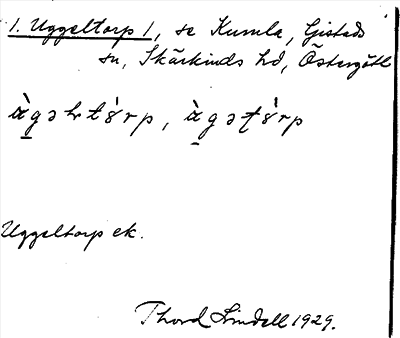 1. Uggeltorp 1, se Kumla, Gistads
sn, Skärkinds hd, Östergötl
Uggeltorp ek.
Thord Lindell 1929.